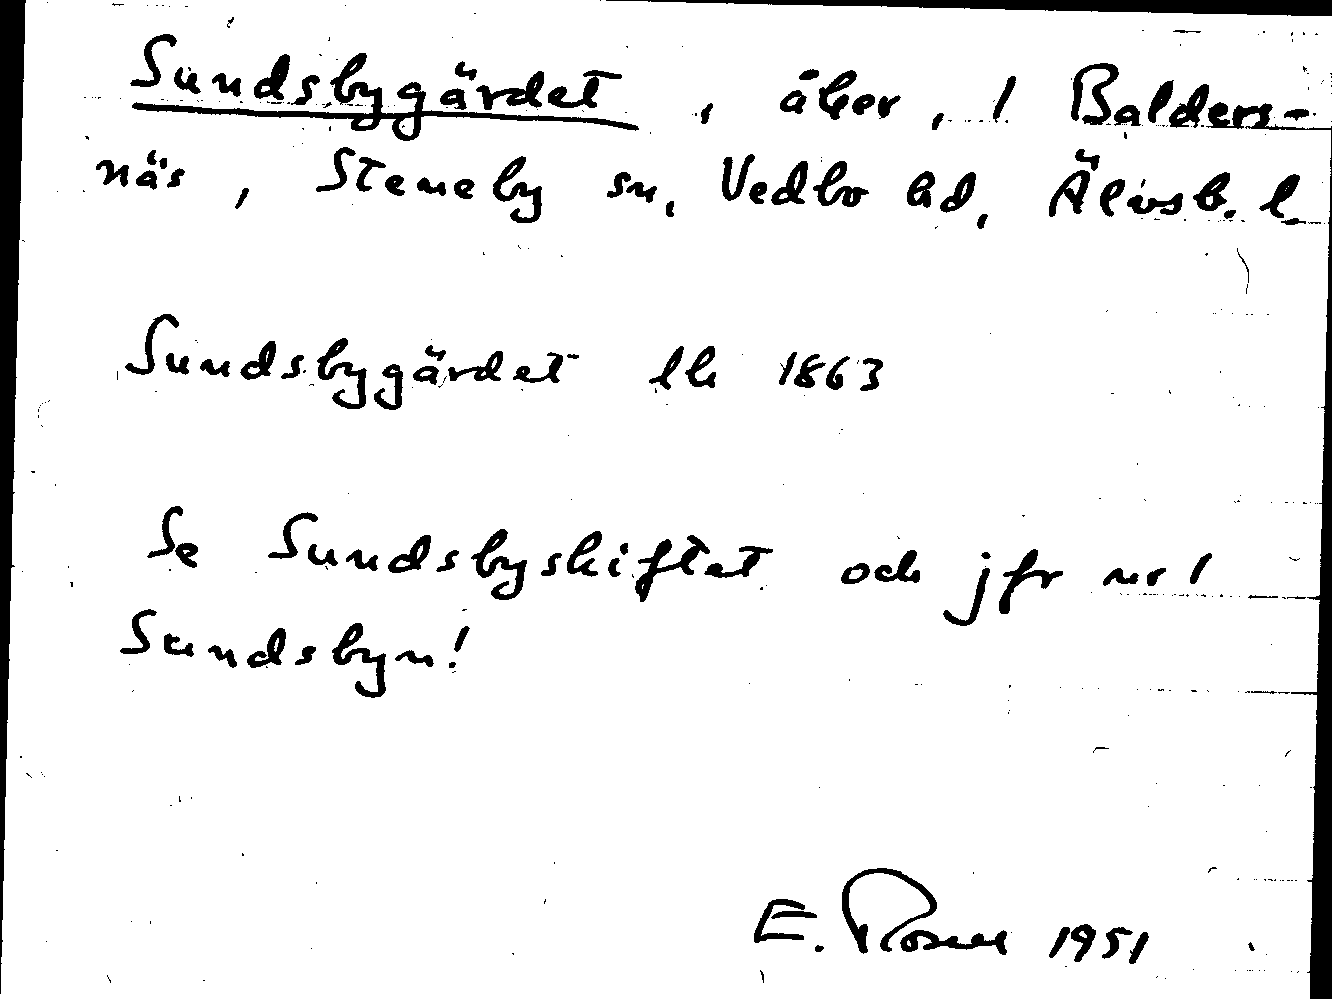 Sundsbygärdet, åker, 1 Balders-
näs, Steneby sn, Vedbo hd, Älvsb. l
Sundsbygärdet lh 1863
Se Sundsbyskiftet och jfr nr 1
Sundsbyn!
E. Rosell 1951